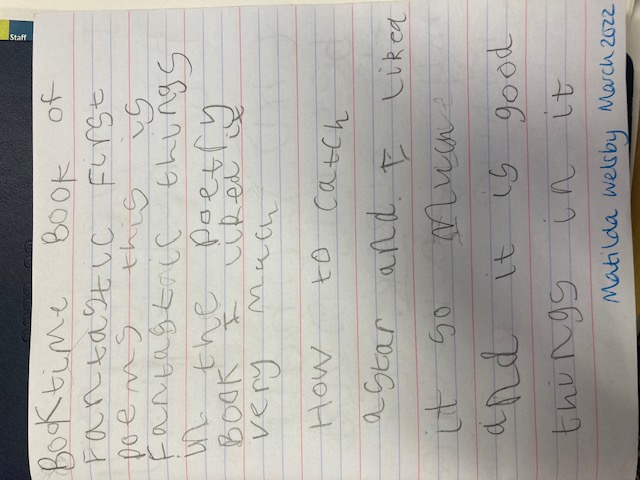 Staff
BOOKtime BOOK of
Fantastic First
poems this is
Fantastic things
in the poetry
BOOK I liked it
very much
How to catch
a star and I liked
it so much
and it is good
things in it
Matilda Welsby March 2022